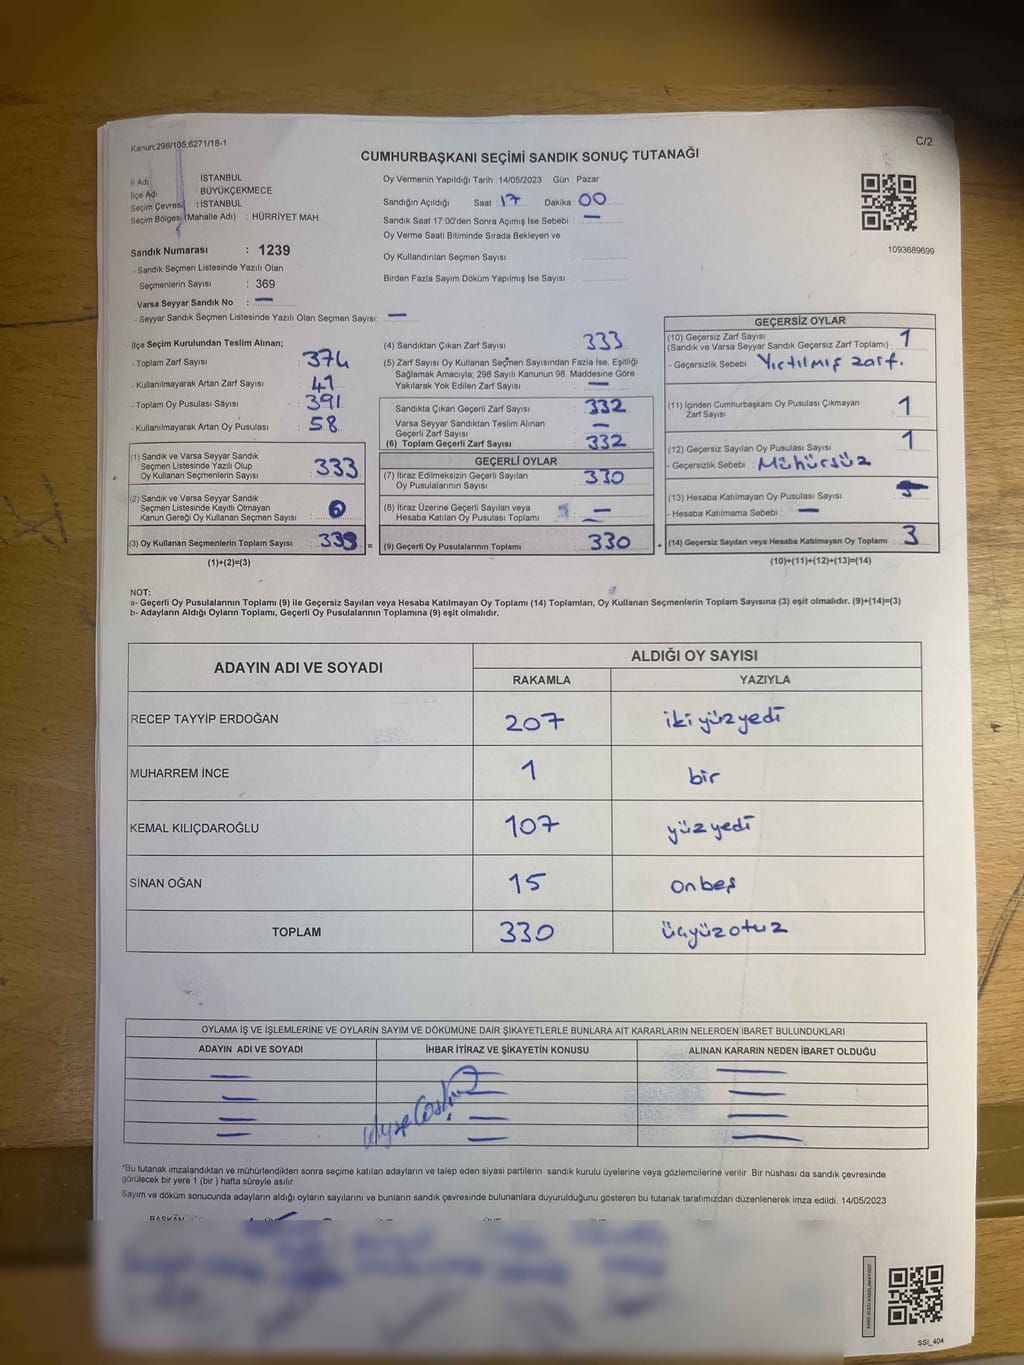 Kanun:298/105;6271/18-1
C/2
CUMHURBAŞKANI SEÇİMİ SANDIK SONUÇ TUTANAĞI
İl Adı : İSTANBUL
İlçe Adı : BÜYÜKÇEKMECE
Seçim Çevresi : İSTANBUL
Seçim Bölgesi (Mahalle Adı) : HÜRRİYET MAH
Sandık Numarası : 1239
- Sandık Seçmen Listesinde Yazılı Olan
Seçmenlerin Sayısı : 369
Varsa Seyyar Sandık No : —
- Seyyar Sandık Seçmen Listesinde Yazılı Olan Seçmen Sayısı: —
Oy Vermenin Yapıldığı Tarih : 14/05/2023 Gün : Pazar
Sandığın Açıldığı Saat : 17 Dakika : 00
Sandık Saat 17:00'den Sonra Açımış İse Sebebi : —
Oy Verme Saati Bitiminde Sırada Bekleyen ve
Oy Kullandırılan Seçmen Sayısı :
Birden Fazla Sayım Döküm Yapılmış İse Sayısı :
1093689699
İlçe Seçim Kurulundan Teslim Alınan;
- Toplam Zarf Sayısı : 374
- Kullanılmayarak Artan Zarf Sayısı : 41
- Toplam Oy Pusulası Sayısı : 391
- Kullanılmayarak Artan Oy Pusulası : 58
(1) Sandık ve Varsa Seyyar Sandık
Seçmen Listesinde Yazılı Olup
Oy Kullanan Seçmenlerin Sayısı : 333
(2) Sandık ve Varsa Seyyar Sandık
Seçmen Listesinde Kayıtlı Olmayan
Kanun Gereği Oy Kullanan Seçmen Sayısı : 0
(3) Oy Kullanan Seçmenlerin Toplam Sayısı : 333 =
(1)+(2)=(3)
(4) Sandıktan Çıkan Zarf Sayısı : 333
(5) Zarf Sayısı Oy Kullanan Seçmen Sayısından Fazla İse, Eşitliği
Sağlamak Amacıyla; 298 Sayılı Kanunun 98. Maddesine Göre
Yakılarak Yok Edilen Zarf Sayısı : —
Sandıkta Çıkan Geçerli Zarf Sayısı : 332
Varsa Seyyar Sandıktan Teslim Alınan
Geçerli Zarf Sayısı : —
(6) Toplam Geçerli Zarf Sayısı : 332
GEÇERLİ OYLAR
(7) İtiraz Edilmeksizin Geçerli Sayılan
Oy Pusulalarının Sayısı : 330
(8) İtiraz Üzerine Geçerli Sayılan veya
Hesaba Katılan Oy Pusulası Toplamı : —
(9) Geçerli Oy Pusulalarının Toplamı : 330 +
GEÇERSİZ OYLAR
(10) Geçersiz Zarf Sayısı
(Sandık ve Varsa Seyyar Sandık Geçersiz Zarf Toplamı) : 1
- Geçersizlik Sebebi : Yırtılmış zarf.
(11) İçinden Cumhurbaşkanı Oy Pusulası Çıkmayan
Zarf Sayısı : 1
(12) Geçersiz Sayılan Oy Pusulası Sayısı : 1
- Geçersizlik Sebebi : Mühürsüz
(13) Hesaba Katılmayan Oy Pusulası Sayısı :
- Hesaba Katılmama Sebebi : —
(14) Geçersiz Sayılan veya Hesaba Katılmayan Oy Toplamı : 3
(10)+(11)+(12)+(13)=(14)
NOT:
a- Geçerli Oy Pusulalarının Toplamı (9) ile Geçersiz Sayılan veya Hesaba Katılmayan Oy Toplamı (14) Toplamları, Oy Kullanan Seçmenlerin Toplam Sayısına (3) eşit olmalıdır. (9)+(14)=(3)
b- Adayların Aldığı Oyların Toplamı, Geçerli Oy Pusulalarının Toplamına (9) eşit olmalıdır.
ADAYIN ADI VE SOYADI ALDIĞI OY SAYISI
RAKAMLA YAZIYLA
RECEP TAYYİP ERDOĞAN 207 iki yüz yedi
MUHARREM İNCE 1 bir
KEMAL KILIÇDAROĞLU 107 yüz yedi
SİNAN OĞAN 15 onbeş
TOPLAM 330 üçyüz otuz
OYLAMA İŞ VE İŞLEMLERİNE VE OYLARIN SAYIM VE DÖKÜMÜNE DAİR ŞİKAYETLERLE BUNLARA AİT KARARLARIN NELERDEN İBARET BULUNDUKLARI
ADAYIN ADI VE SOYADI İHBAR İTİRAZ VE ŞİKAYETİN KONUSU ALINAN KARARIN NEDEN İBARET OLDUĞU
"Bu tutanak imzalandıktan ve mühürlendikten sonra seçime katılan adayların ve talep eden siyasi partilerin sandık kurulu üyelerine veya gözlemcilerine verilir. Bir nüshası da sandık çevresinde
görülecek bir yere 1 (bir ) hafta süreyle asılır.
Sayım ve döküm sonucunda adayların aldığı oyların sayılarını ve bunların sandık çevresinde bulunanlara duyurulduğunu gösteren bu tutanak tarafımızdan düzenlenerek imza edildi. 14/05/2023
BAŞKAN
SSİ_404